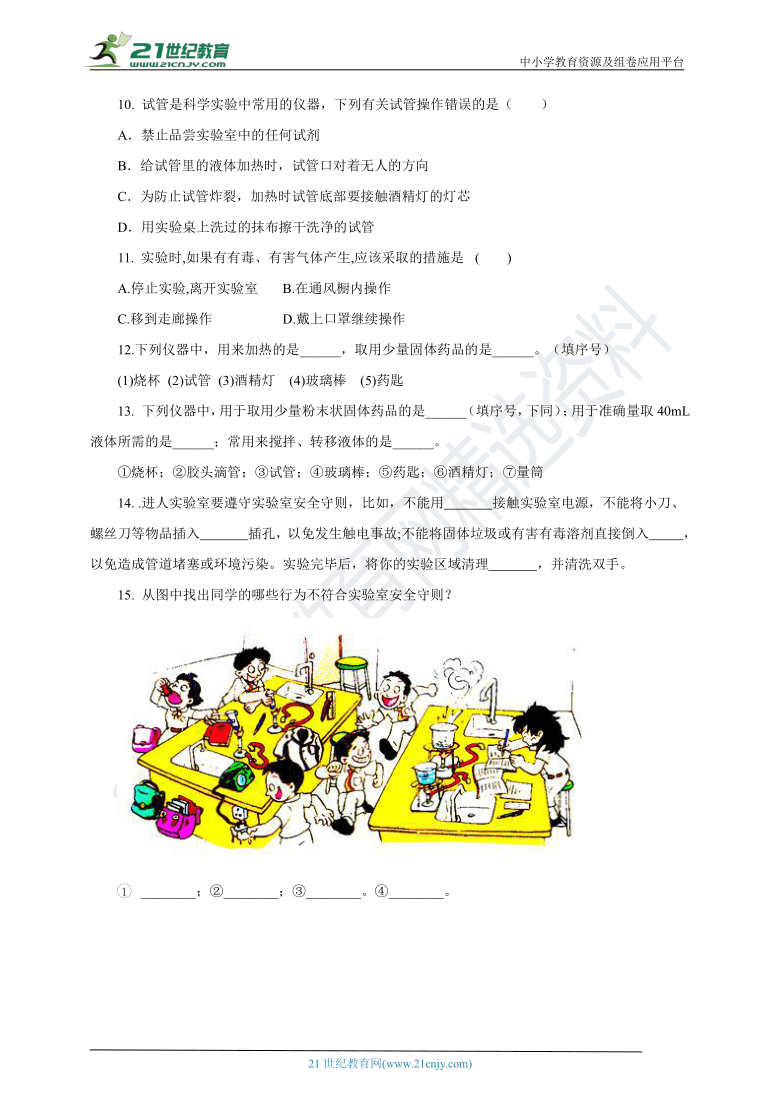 21世纪教育
WWW.21CNJY.COM
中小学教育资源及组卷应用平台
10. 试管是科学实验中常用的仪器，下列有关试管操作错误的是（　　）
A．禁止品尝实验室中的任何试剂
B．给试管里的液体加热时，试管口对着无人的方向
C．为防止试管炸裂，加热时试管底部要接触酒精灯的灯芯
D．用实验桌上洗过的抹布擦干洗净的试管
11. 实验时,如果有有毒、有害气体产生,应该采取的措施是 (　　)
A.停止实验,离开实验室 B.在通风橱内操作
C.移到走廊操作 D.戴上口罩继续操作
12.下列仪器中，用来加热的是______，取用少量固体药品的是______。（填序号）
(1)烧杯 (2)试管 (3)酒精灯 (4)玻璃棒 (5)药匙
13. 下列仪器中，用于取用少量粉末状固体药品的是______（填序号，下同）；用于准确量取 40mL
液体所需的是______；常用来搅拌、转移液体的是______。
①烧杯；②胶头滴管；③试管；④玻璃棒；⑤药匙；⑥酒精灯；⑦量筒
14. .进人实验室要遵守实验室安全守则，比如，不能用_______接触实验室电源，不能将小刀、
螺丝刀等物品插入_______插孔，以免发生触电事故;不能将固体垃圾或有害有毒溶剂直接倒入_____，
以免造成管道堵塞或环境污染。实验完毕后，将你的实验区域清理_______，并清洗双手。
15. 从图中找出同学的哪些行为不符合实验室安全守则？
① ________；②________；③________。④________。
21 世纪教育网(www.21cnjy.com)